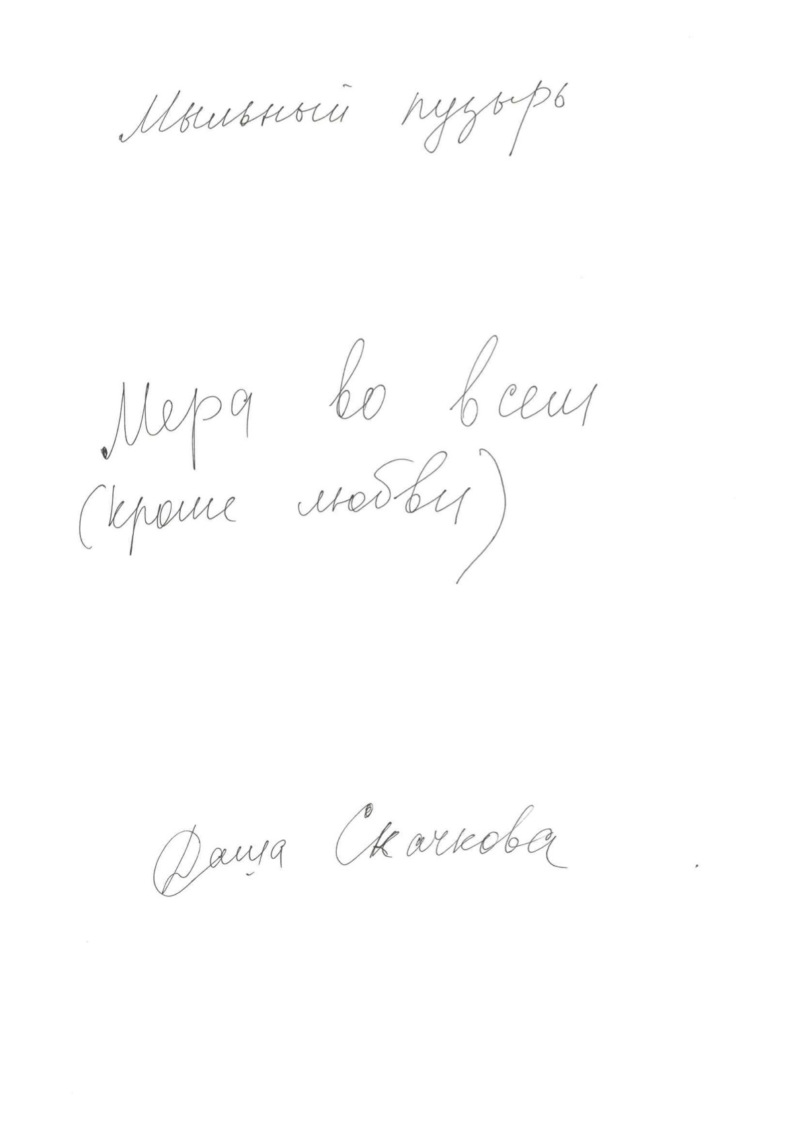 Мыльный пузырь
Мера во всем
(кроме любви)
Даша Скачкова